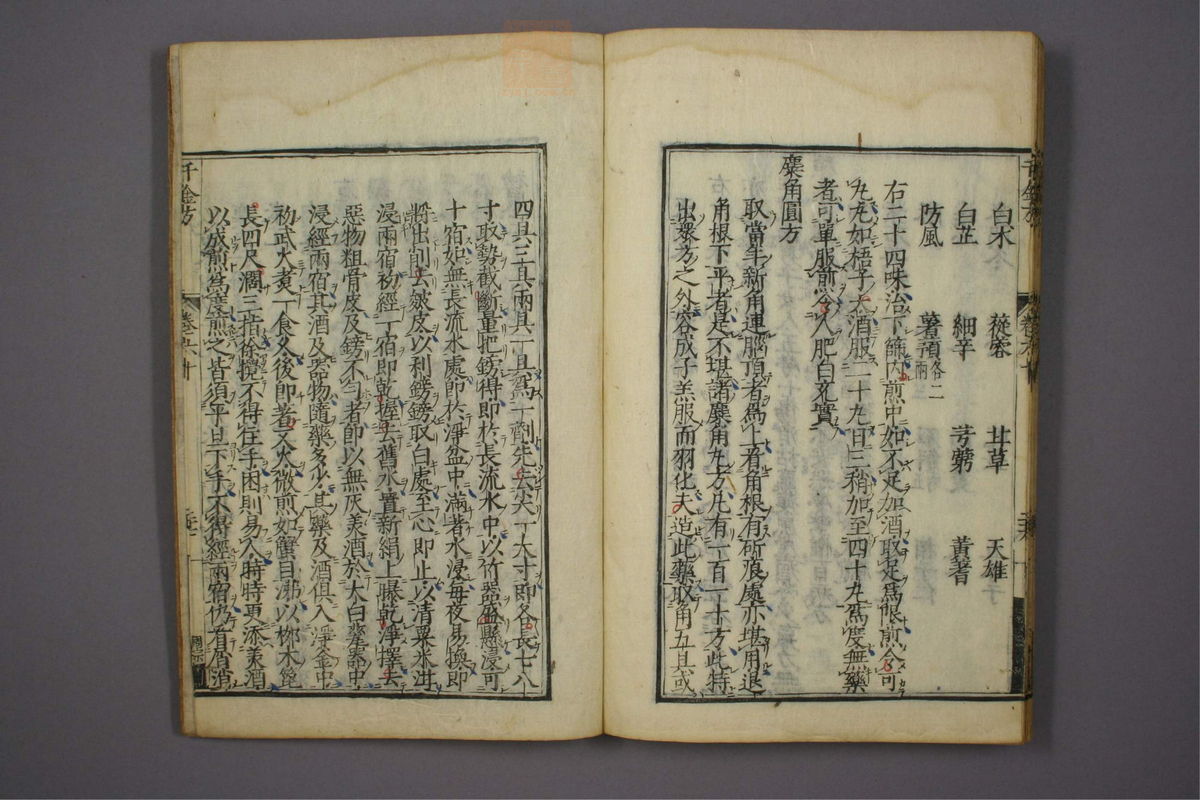 白木 蓯蓉 甘草 天雄
白芷 細辛 芎藭 黃耆
防風 薯蕷各二兩
右二十四味治下篩內煎中如不足加酒取足為限煎令可
丸丸如梧子大酒服二十丸日三稍加至四十丸為度無藥
者可單服煎令人肥白充實
麋角圓方
取當年新角連腦頂者為上看角根有斫痕處亦堪用退
角根下平者是不堪諸麋角丸方凡有一百一十方此特
出眾方之外容成子羔服而羽化夫造此藥取角五具或
四具三具兩具一具為一劑先去尖一大寸即各長七八
寸取勢截斷量把鎊得即於長流水中以竹器盛懸浸可
十宿如無長流水處即於淨盆中滿著水浸每夜易換即
將出削去皴皮以利鎊鎊取白處至心即止以清粟米泔
浸兩宿初經一宿即乾握去舊水置新絹上曝乾淨擇去
惡物粗骨皮及鎊不勻者即以無灰美酒於大白甆器中
浸經兩宿其酒及器物隨藥多少其藥及酒俱入淨釜中
初武火煑一食久後即著文火微煎如蟹目沸以柳木篦
長四尺濶三指徐攪不得住手困則易人時時更添美酒
以成煎為度煎之皆須平旦下手不得經兩宿仍看屑消
千金方 卷六十